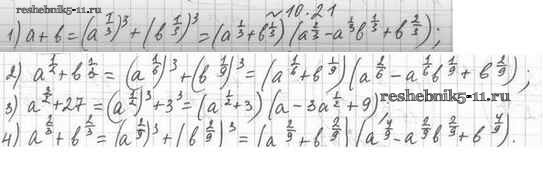 reshebnik5-11.ru
~10.21
1) a+b=(a^{1/3})^3+(b^{1/3})^3=(a^{1/3}+b^{1/3})(a^{2/3}-a^{1/3}b^{1/3}+b^{2/3});
2) a^{1/2}+b^{1/3}=(a^{1/6})^3+(b^{1/9})^3=(a^{1/6}+b^{1/9})(a^{2/6}-a^{1/6}b^{1/9}+b^{2/9});
3) a^{3/2}+27=(a^{1/2})^3+3^3=(a^{1/2}+3)(a-3a^{1/2}+9),
reshebnik5-11.ru
4) a^{2/3}+b^{2/3}=(a^{2/9})^3+(b^{2/9})^3=(a^{2/9}+b^{2/9})(a^{4/9}-a^{2/9}b^{2/9}+b^{4/9}).